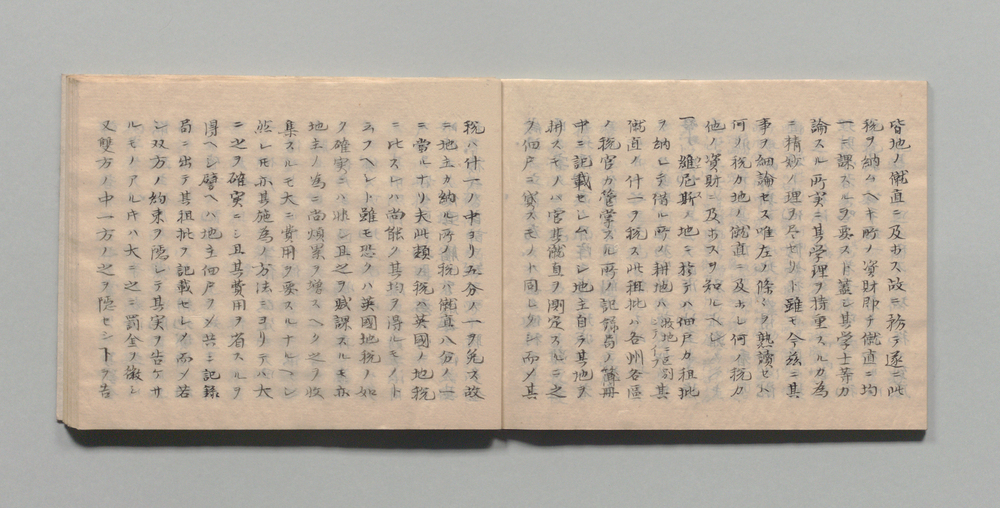 皆地ノ僦直ニ及ホス故ニ務テ遂ニ此
税ヲ納ムヘキ所ノ資財即チ僦直ニ均
一ニ課スルヲ要スト蓋シ其学士等カ
論スル所実ニ其学理ヲ持重スルカ為
ニ精妙ノ理ヲ尽セリト雖モ今茲ニ其
事ヲ細論セス唯左ノ條々ヲ熟讀セハ
何ノ税カ地ノ僦直ニ及ホシ何ノ税カ
他ノ資財ニ及ホスヲ知ルヘシ
一 維尼斯ノ地ニ於テハ佃戸カ租批
ヲ納レテ借ル所ノ耕地ハ各州各區
僦直ノ什一ヲ税ス此租批ハ各州各區
ノ税官カ管掌スル所ノ記録局ノ簿冊
中ニ記載セシム若シ地主自ラ其地ヲ
耕スモノハ官其僦直ヲ測定スルニ之
ヲ佃戸ニ貸スモノト同シクシ而メ其
税ハ什一ノ中ヨリ五分ノ一ヲ免ス故
ニ地主カ納ル所ノ税ハ僦直八分ノ一
ニ當ルナリ夫此類ノ税ハ英國ノ地税
ニ比スレハ尚能ク其均ヲ得ルモノト
云フヘシト雖モ恐クハ英國地税ノ如
ク確実ニハ非シ且之ヲ賦課スルモ亦
地主ノ為ニ尚煩累ヲ増スヘク之ヲ收
集スルモ大ニ費用ヲ要スルナルヘシ
然レモ亦其施為ノ方法ニヨリテハ大
ニ之ヲ確実ニシ且其費用ヲ省スルヲ
得ヘシ譬ヘハ地主佃戸ヲメ共ニ記録
局ニ出テ其租批ヲ記載セシメ而メ若
シ双方ノ約束ヲ隠シテ其実ヲ告ケサ
ルモノアルキハ大ニ之ニ罰金ヲ徴シ
又雙方ノ中一方ノ之ヲ隠セシトヲ告